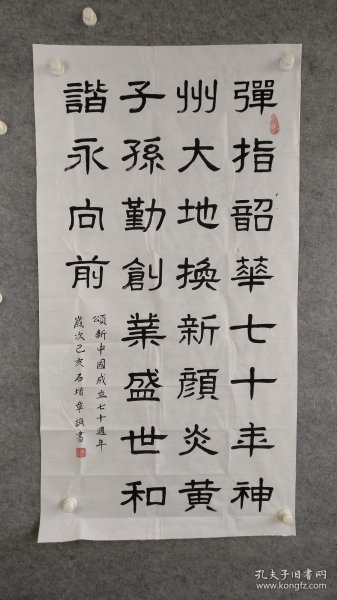 彈指韶華七十年神
州大地換新顏炎黃
子孫勤創業盛世和
諧永向前
頌新中國成立七十週年
歲次己亥石增章撰書
孔夫子旧书网
www.kongfz.com